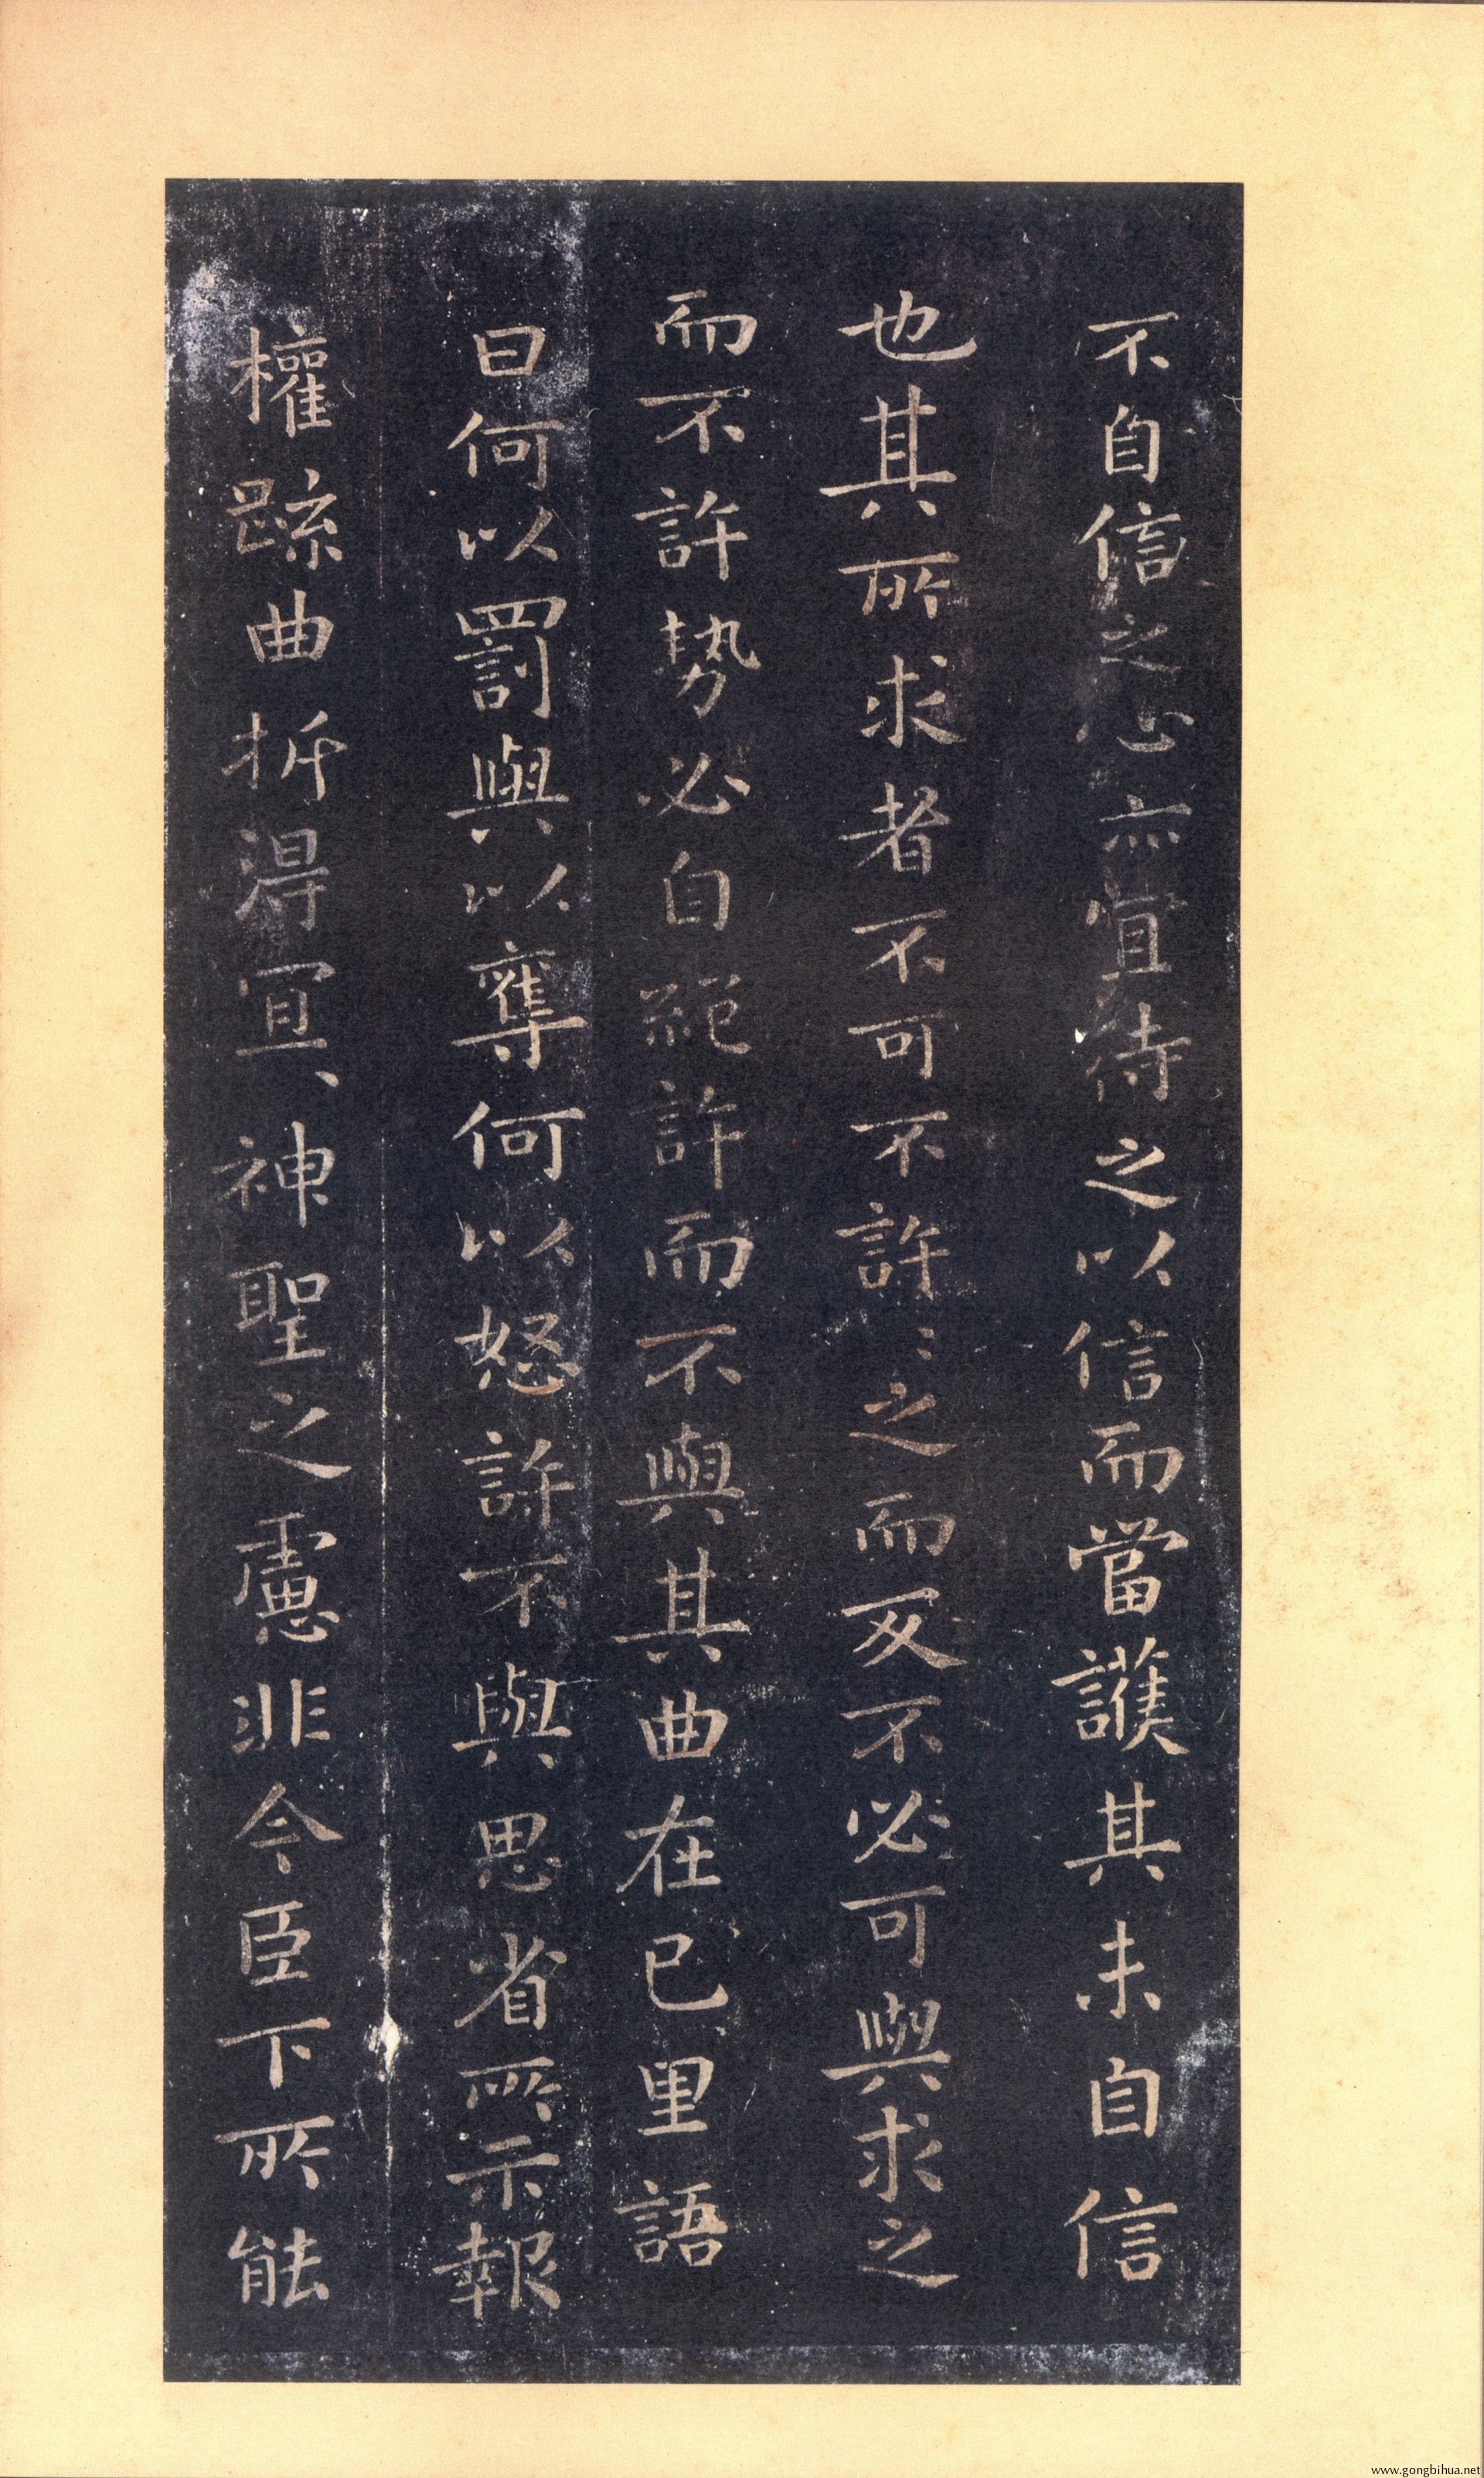 不自信之心亦宜待之以信而當護其未自信
也其所求者不可不許許之而反不必可與求之
而不許勢必自絕許而不與其曲在己里語
曰何以罰與以奪何以怒許不與思省所示報
權疏曲折得宜神聖之慮非今臣下所能
www.gongbihua.net